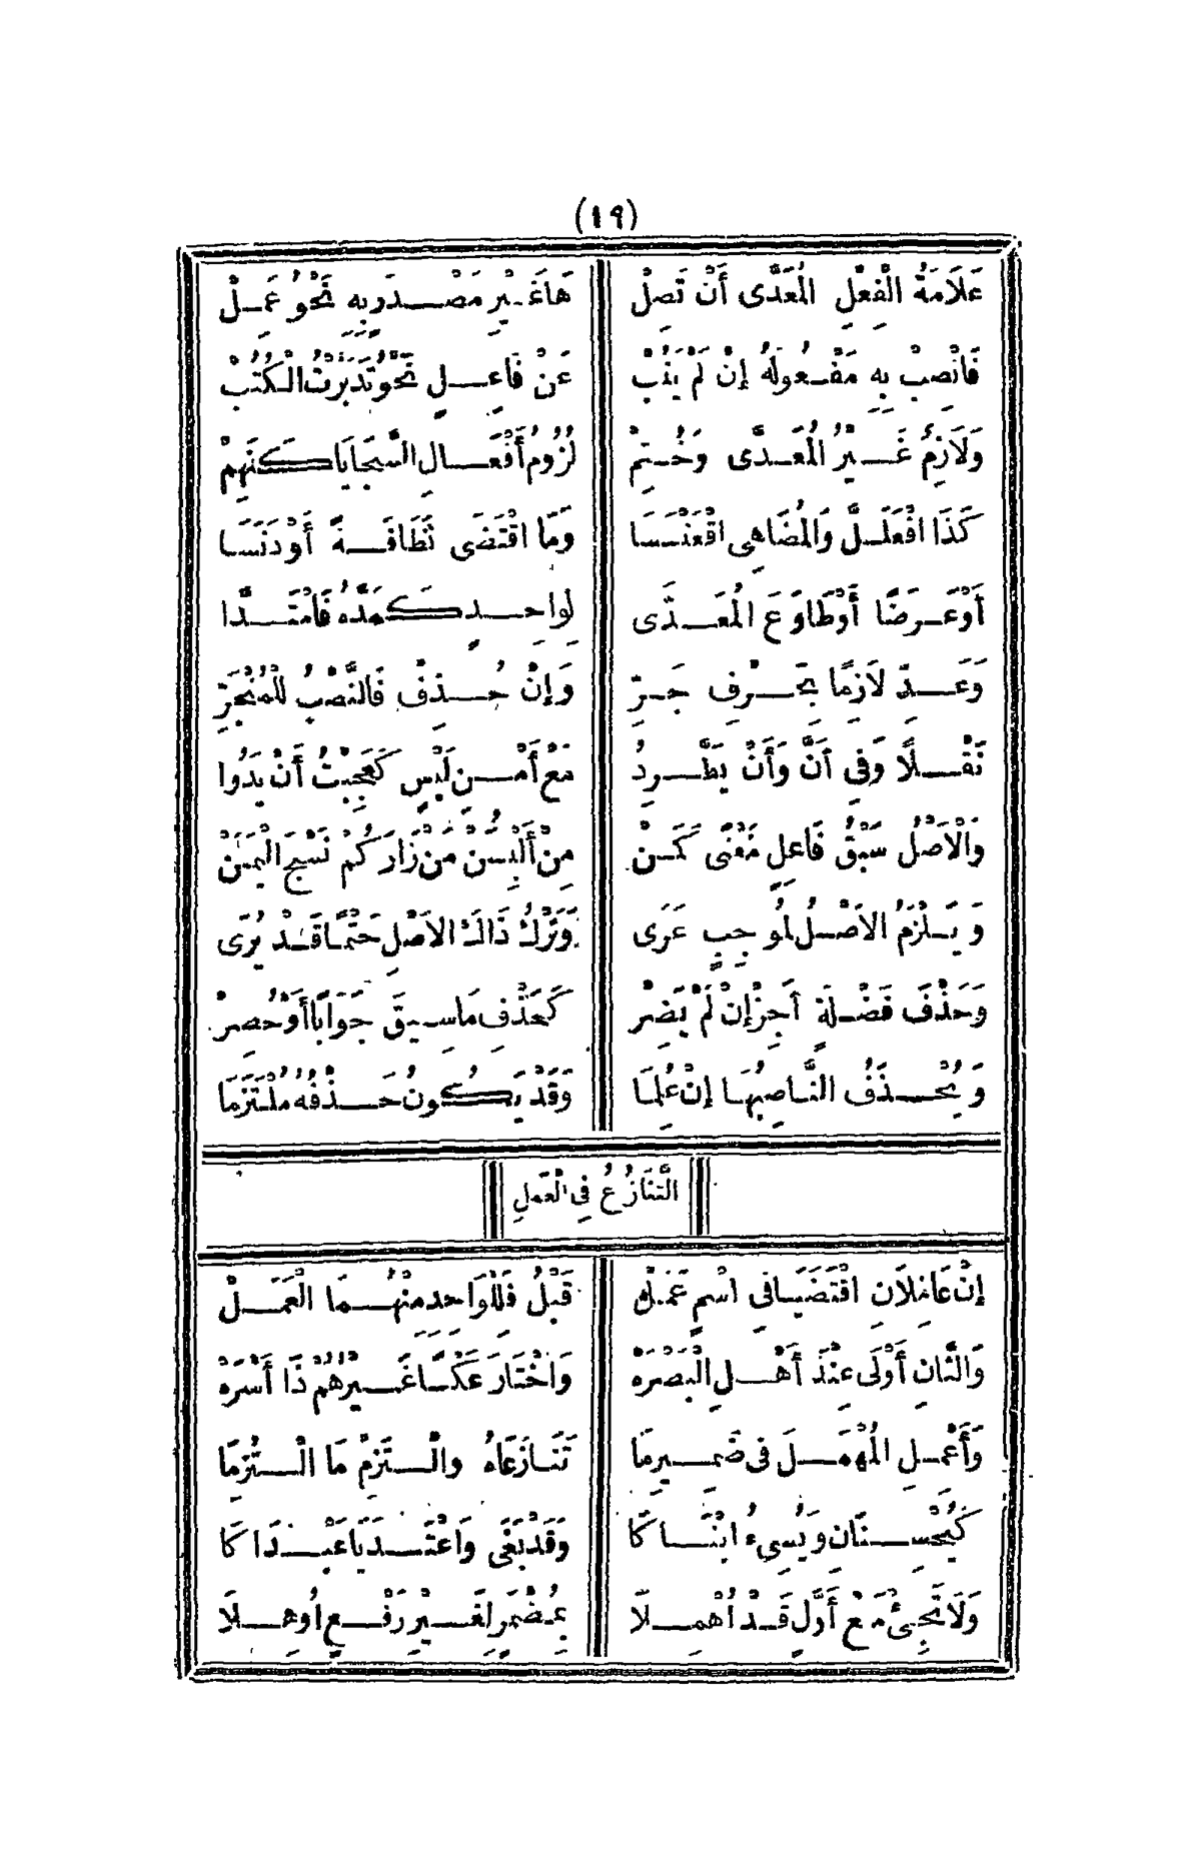 (١٩)
عَلَامَةُ الْفِعْلِ الْمُعَدَّى أَنْ تَصِلْ هَا غَيْرِ مَصْدَرٍ بِهِ نَحْوُ عَمِلْ
فَانْصِبْ بِهِ مَفْعُولَهُ إِنْ لَمْ يَنُبْ عَنْ فَاعِلٍ نَحْوُ تَدَبَّرْتُ الْكُتُبْ
وَلَازِمٌ غَيْرُ الْمُعَدَّى وَحُتِمْ لُزُومُ أَفْعَالِ السَّجَايَا كَنَهِمْ
كَذَا افْعَلَلَّ وَالْمُضَاهِى اقْعَنْسَسَا وَمَا اقْتَضَى نَظَافَةً أَوْ دَنَسَا
أَوْ عَرَضًا أَوْ طَاوَعَ الْمُعَدَّى لِوَاحِدٍ كَمَدَّهُ فَامْتَدَّا
وَعَدِّ لَازِمًا بِحَرْفِ جَرِّ وَإِنْ حُذِفْ فَالنَّصْبُ لِلْمُنْجَرِّ
نَقْلًا وَفِى أَنَّ وَأَنْ يَطَّرِدُ مَعْ أَمْنِ لَبْسٍ كَعَجِبْتُ أَنْ يَدُوا
وَالْأَصْلُ سَبْقُ فَاعِلٍ مَعْنًى كَمَنْ مِنْ أَلْبِسُنْ مَنْ زَارَكُمْ نَسْجَ الْيَمَنْ
وَيَلْزَمُ الْأَصْلُ لِمُوجِبٍ عَرَى وَتَرْكُ ذَاكَ الْأَصْلِ حَتْمًا قَدْ يُرَى
وَحَذْفَ فَضْلَةٍ أَجِزْ إِنْ لَمْ يَضِرْ كَحَذْفِ مَا سِيقَ جَوَابًا أَوْ حُصِرْ
وَيُحْذَفُ النَّاصِبُهَا إِنْ عُلِمَا وَقَدْ يَكُونُ حَذْفُهُ مُلْتَزَمَا
التَّنَازُعُ فِى الْعَمَلِ
إِنْ عَامِلَانِ اقْتَضَيَا فِى اسْمٍ عَمَلْ قَبْلُ فَلِلْوَاحِدِ مِنْهُمَا الْعَمَلْ
وَالثَّانِ أَوْلَى عِنْدَ أَهْلِ الْبَصْرَهْ وَاخْتَارَ عَكْسًا غَيْرُهُمْ ذَا أَسْرَهْ
وَأَعْمِلِ الْمُهْمَلَ فِى ضَمِيرِ مَا تَنَازَعَاهُ وَالْتَزِمْ مَا الْتُزِمَا
كَيُحْسِنَانِ وَيُسِىءُ ابْنَاكَا وَقَدْ بَغَى وَاعْتَدَيَا عَبْدَاكَا
وَلَا تَجِئْ مَعْ أَوَّلٍ قَدْ أُهْمِلَا بِمُضْمَرٍ لِغَيْرِ رَفْعٍ أُوهِلَا